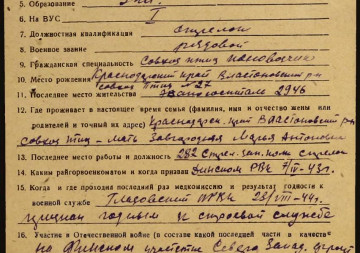 5. Образование
6. На ВУС I
7. Должностная квалификация стрелок
8. Военное звание рядовой
9. Гражданская специальность Совхоз птиц
10. Место рождения Краснодарский край р-н
совхоз птиц № 27
11. Последнее место жительства 2946
12. Где проживает в настоящее время семья (фамилия, имя и отчество жены или
родителей и точный их адрес) Краснодарск. р-н
совхоз птиц — мать Мария Антоновна
13. Последнее место работы и должность 282 Стрел. зап. полк стрелок
14. Каким райгорвоенкоматом и когда призван РВК 7/IV-43г.
15. Когда и где проходил последний раз медкомиссию и результат годности к
военной службе РВК 23/VIII-44г.
признан годным к строевой службе
16. Участие в Отечественной войне (в составе какой последней части и в качестве
на Финском участке Северо Запад. фронт